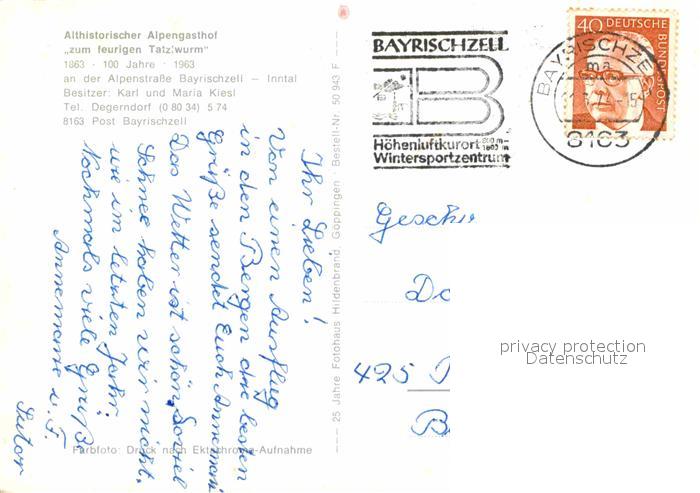 Althistorischer Alpengasthof
„zum feurigen Tatzlwurm"
1863 · 100 Jahre · 1963
an der Alpenstraße Bayrischzell – Inntal
Besitzer: Karl und Maria Kiesl
Tel. Degerndorf (0 80 34) 5 74
8163 Post Bayrischzell
Ihr Lieben!
Von einen Ausflug
in den Bergen die besten
Grüße sendet Euch Annemarie
Das Wetter ist schön, Soviel
Schnee haben wir nicht.
wie im letzten Jahr.
Nochmals viele Grüße
Annemarie u. F.
Sutor
Farbfoto: Druck nach Ektachrome-Aufnahme
25 Jahre Fotohaus Hildenbrand, Göppingen · Bestell-Nr. 50 943 F
BAYRISCHZELL
B
Höhenluftkurort 800 m–
Wintersportzentrum
BAYRISCHZE
ma
8163
40 DEUTSCHE BUNDESPOST
Geschw
Do
425
B
privacy protection
Datenschutz